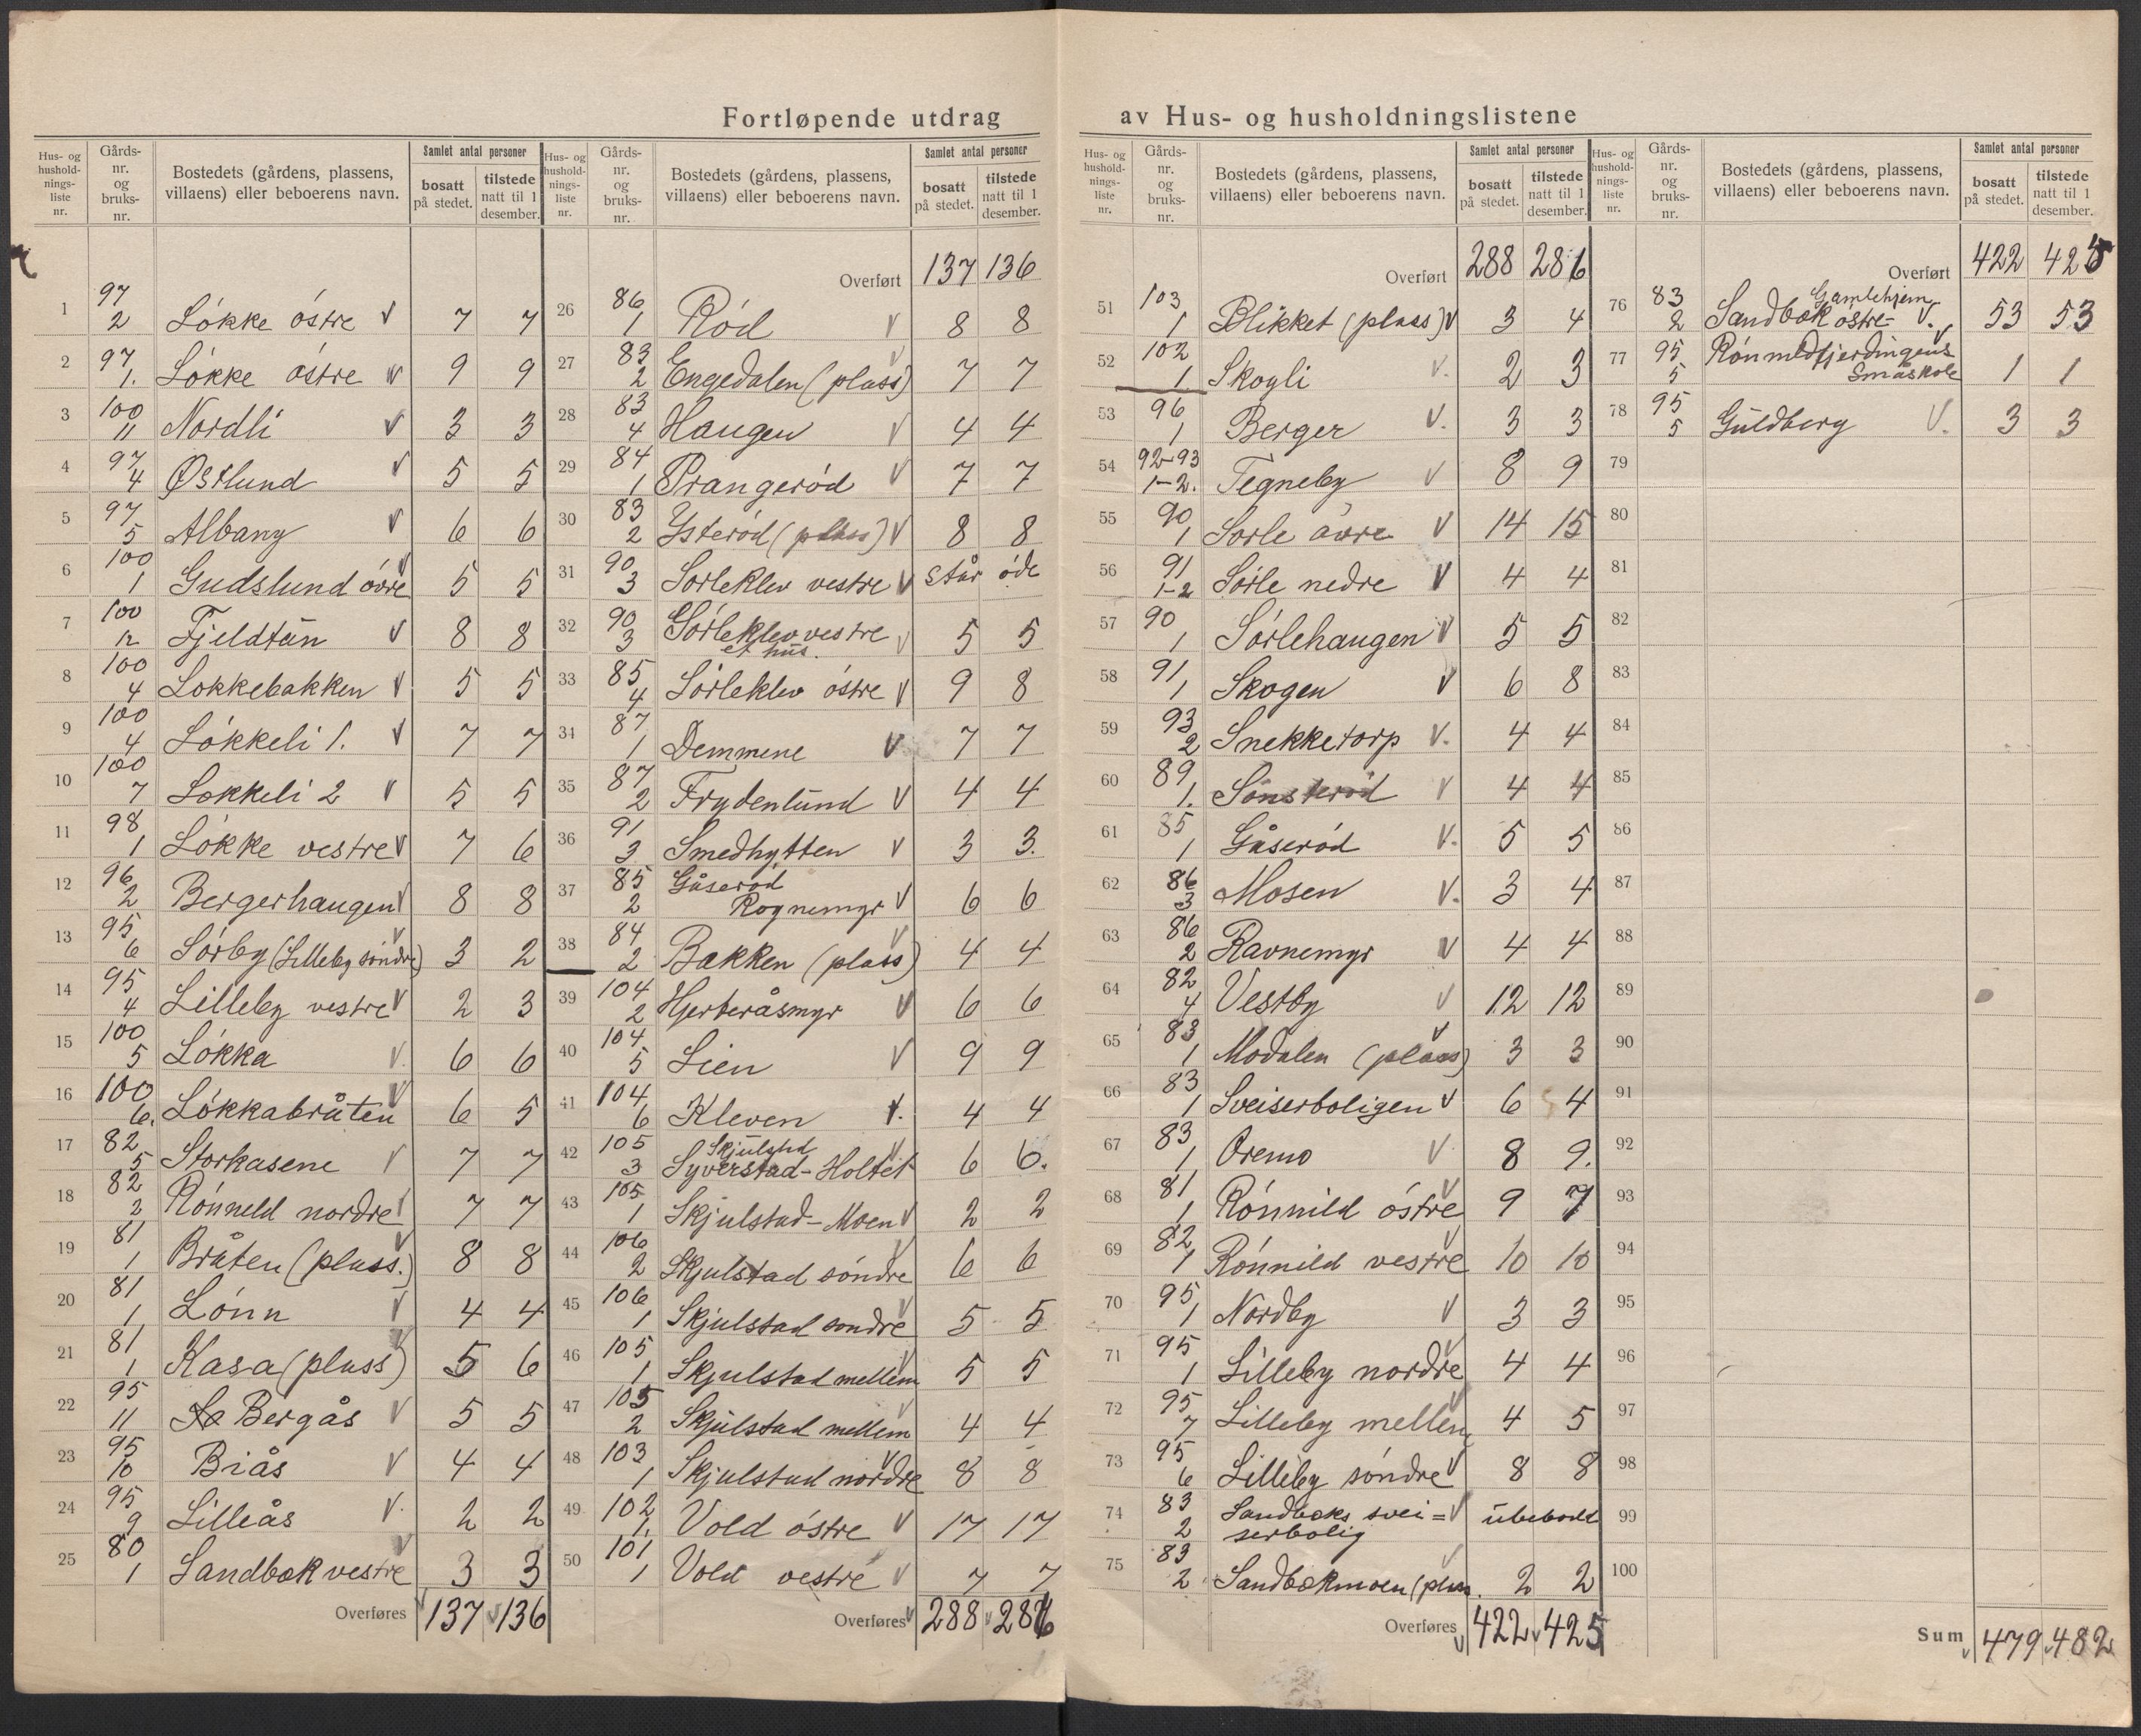 Fortløpende utdrag av Hus- og husholdningslistene
Hus- og hushold- nings- liste nr. Gårds- nr. og bruks- nr. Bostedets (gårdens, plassens, villaens) eller beboerens navn. Samlet antal personer bosatt på stedet. tilstede natt til 1 desember.
1 97 2 Løkke østre v 7 7
2 97 1. Løkke østre v 9 9
3 100 11 Nordli v 3 3
4 97 4 Østlund v 5 5
5 97 5 Albany v 6 6
6 100 1 Gudslund övre v 5 5
7 100 12 Fjeldtün v 8 8
8 100 4 Løkkebakken v 5 5
9 100 4 Løkkeli 1. v 7 7
10 100 7 Løkkeli 2 v 5 5
11 98 1 Løkke vestre v 7 6
12 96 2 Bergerhaugen v 8 8
13 95 6 Sørby (Lilleby søndre) v 3 2
14 95 4 Lilleby vestre v 2 3
15 100 5 Løkka v 6 6
16 100 6. Løkkabråten v 6 5
17 82 5 Storkasene v 7 7
18 82 2 Rønneld nordre v 7 7
19 81 1 Bråten (plass.) v 8 8
20 81 1 Lønn v 4 4
21 81 1 Kasa (plass) v 5 6
22 95 11 Bergås v 5 5
23 95 10 Briås v 4 4
24 95 9 Lilleås v. 2 2
25 80 1 Sandbæk vestre v 3 3
Overføres 137 136
Hus- og hushold- nings- liste nr. Gårds- nr. og bruks- nr. Bostedets (gårdens, plassens, villaens) eller beboerens navn. Samlet antal personer bosatt på stedet. tilstede natt til 1 desember.
Overført 137 136
26 86 1 Rød v 8 8
27 83 2 Engedalen (plass) v 7 7
28 83 4 Haugen v 4 4
29 84 1 Prangerød v 7 7
30 83 2 Ysterød (plass) v 8 8
31 90 3 Sørleklev vestre v står øde
32 90 3 Sørleklev vestre v 5 5
et hus.
33 85 4 Sørleklev østre v 9 8
34 87 1 Demmene v 7 7
35 87 2 Frydenlünd v 4 4
36 91 3 Smedhytten v 3 3.
37 85 2 Gåserød
Rognemyr v 6 6
38 84 2 Bakken (plass) v 4 4
39 104 2 Hjerteråsmyr v 6 6
40 104 5 Lien v 9 9
41 104 6 Kleven v. 4 4
42 105 3 Skjülstad
Syverstad-Holtet v 6 6.
43 105 1 Skjulstad-Moen v 2 2
44 106 2 Skjulstad søndre v 6 6
45 106 1 Skjulstad søndre v 5 5
46 105 1 Skjulstad mellem v 5 5
47 105 2 Skjülstad mellem v 4 4
48 103 1 Skjulstad nordre v 8 8
49 102 1. Vold østre v 17 17
50 101 1 Vold vestre v 7 7
Overføres 288 286
Hus- og hushold- nings- liste nr. Gårds- nr. og bruks- nr. Bostedets (gårdens, plassens, villaens) eller beboerens navn. Samlet antal personer bosatt på stedet. tilstede natt til 1 desember.
Overført 288 286
51 103 1 Blikket (plass) v 3 4
52 102 1 Skogli v. 2 3
53 96 1 Berger v. 3 3
54 92-93 1-2. Tegneby v 8 9
55 90 1 Sørle øvre v 14 15
56 91 1-2 Sørle nedre v 4 4
57 90 1 Sørlehaugen v 5 5
58 91 1 Skogen v 6 8
59 93 2 Snekketorp v. 4 4
60 89 1. Sønsterød v 4 4
61 85 1 Gåserød v. 5 5
62 86 3 Mosen v. 3 4
63 86 2 Ravnemyr v 4 4
64 82 4 Vestby v 12 12
65 83 1 Modalen (plass) v 3 3
66 83 1 Sveiserboligen v 6 4
67 83 1 Oremo v. 8 9.
68 81 1 Rønnild østre v 9 7
69 82 1 Rønnild vestre v 10 10
70 95 1 Nordby v 3 3
71 95 1 Lilleby nordre v 4 4
72 95 7 Lilleby mellem v 4 5
73 95 6 Lilleby søndre v 8 8
74 83 2 Sandbæks svei= v übebodd
serbolig
75 83 2 Sandbækmoen (plass. v 2 2
Overføres 422 425
Hus- og hushold- nings- liste nr. Gårds- nr. og bruks- nr. Bostedets (gårdens, plassens, villaens) eller beboerens navn. Samlet antal personer bosatt på stedet. tilstede natt til 1 desember.
Overført 422 425
76 83 2 Gamlehjem
Sandbæk østre- v. 53 53
77 95 5 Rønnildfjerdingens v
Småskole 1 1
78 95 5 Güldberg v. 3 3
79
80
81
82
83
84
85
86
87
88
89
90
91
92
93
94
95
96
97
98
99
100
Sum 479 482